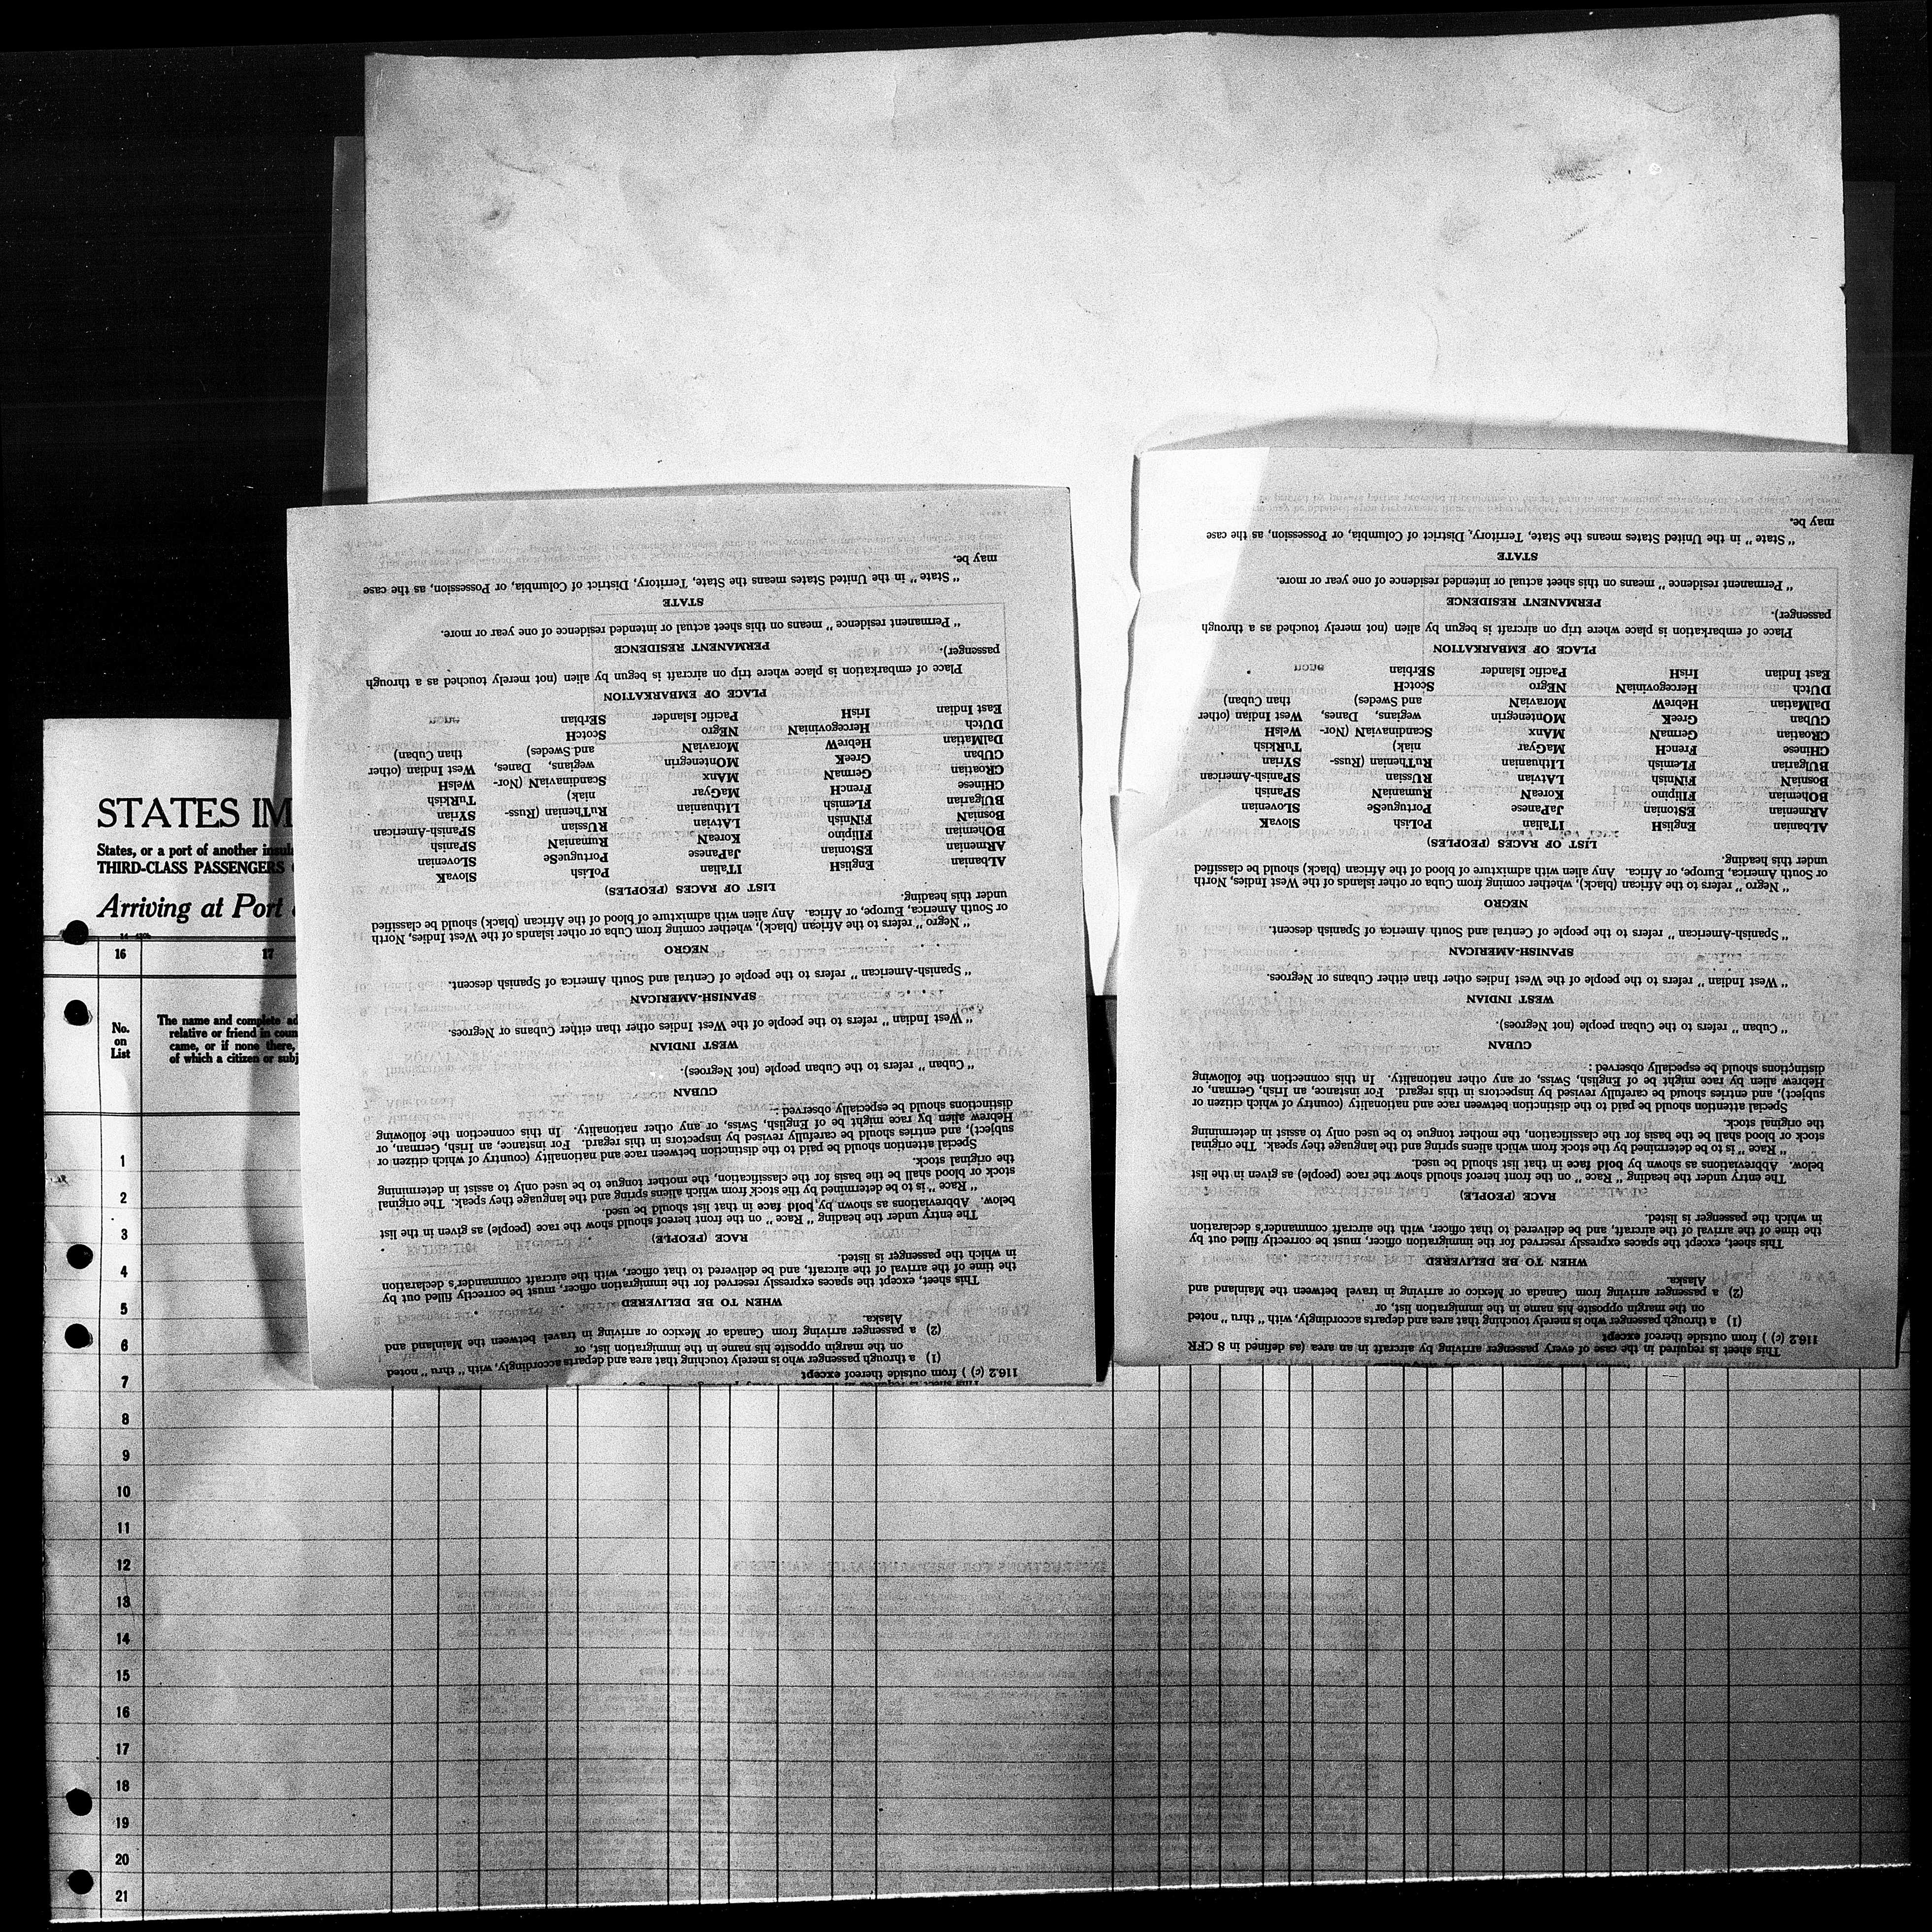 STATES IM
States, or a port of another insula
THIRD-CLASS PASSENGERS
Arriving at Port
16 17
No.
on
List
The name and complete ad
relative or friend in coun
came, or if none there,
of which a citizen or subj
1
2
3
4
5
6
7
8
9
10
11
12
13
14
15
16
17
18
19
20
21
116.2 (c) ) from outside thereof except
(1) a through passenger who is merely touching that area and departs accordingly, with “thru” noted
on the margin opposite his name in the immigration list, or
(2) a passenger arriving from Canada or Mexico or arriving in travel between the Mainland and
Alaska.
WHEN TO BE DELIVERED
This sheet, except the spaces expressly reserved for the immigration officer, must be correctly filled out by
the time of the arrival of the aircraft, and be delivered to that officer, with the aircraft commander's declaration
in which the passenger is listed.
RACE (PEOPLE)
The entry under the heading “Race” on the front hereof should show the race (people) as given in the list
below. Abbreviations as shown by bold face in that list should be used.
“Race” is to be determined by the stock from which aliens spring and the language they speak. The original
stock or blood shall be the basis for the classification, the mother tongue to be used only to assist in determining
the original stock.
Special attention should be paid to the distinction between race and nationality (country of which citizen or
subject), and entries should be carefully revised by inspectors in this regard. For instance, an Irish, German, or
Hebrew alien by race might be of English, Swiss, or any other nationality. In this connection the following
distinctions should be especially observed:
CUBAN
“Cuban” refers to the Cuban people (not Negroes).
WEST INDIAN
“West Indian” refers to the people of the West Indies other than either Cubans or Negroes.
SPANISH-AMERICAN
“Spanish-American” refers to the people of Central and South America of Spanish descent.
NEGRO
“Negro” refers to the African (black), whether coming from Cuba or other islands of the West Indies, North
or South America, Europe, or Africa. Any alien with admixture of blood of the African (black) should be classified
under this heading.
LIST OF RACES (PEOPLES)
ALbanian EnglisH ITalian PoLish SlovaK
ARmenian EStonian JaPanese PortugueSe SLovenian
BOhemian FIlipino KoreaN RumaniaN SPanish
BosniaN FiNnish LAtvian RUssian SPanish-American
BUlgarian FLemish LIthuanian RuThenian (Russ- SYrian
CHinese FrencH MaGyar niak) TuRkish
CRoatian GermaN MAnx ScandinaviaN (Nor- WelsH
CUban GreeK MOntenegrin wegians, Danes, West Indian (other
DalMatian HebreW MoraviaN and Swedes) than Cuban)
DUtch HercegoviniaN NEgro ScotcH
East Indian IrisH Pacific Islander SErbian
PLACE OF EMBARKATION
Place of embarkation is place where trip on aircraft is begun by alien (not merely touched as a through
passenger).
PERMANENT RESIDENCE
“Permanent residence” means on this sheet actual or intended residence of one year or more.
STATE
“State” in the United States means the State, Territory, District of Columbia, or Possession, as the case
may be.
This sheet is required in the case of every passenger arriving by aircraft in an area (as defined in 8 CFR
116.2 (c) ) from outside thereof except
(1) a through passenger who is merely touching that area and departs accordingly, with “thru” noted
on the margin opposite his name in the immigration list, or
(2) a passenger arriving from Canada or Mexico or arriving in travel between the Mainland and
Alaska.
WHEN TO BE DELIVERED
This sheet, except the spaces expressly reserved for the immigration officer, must be correctly filled out by
the time of the arrival of the aircraft, and be delivered to that officer, with the aircraft commander's declaration
in which the passenger is listed.
RACE (PEOPLE)
The entry under the heading “Race” on the front hereof should show the race (people) as given in the list
below. Abbreviations as shown by bold face in that list should be used.
“Race” is to be determined by the stock from which aliens spring and the language they speak. The original
stock or blood shall be the basis for the classification, the mother tongue to be used only to assist in determining
the original stock.
Special attention should be paid to the distinction between race and nationality (country of which citizen or
subject), and entries should be carefully revised by inspectors in this regard. For instance, an Irish, German, or
Hebrew alien by race might be of English, Swiss, or any other nationality. In this connection the following
distinctions should be especially observed:
CUBAN
“Cuban” refers to the Cuban people (not Negroes).
WEST INDIAN
“West Indian” refers to the people of the West Indies other than either Cubans or Negroes.
SPANISH-AMERICAN
“Spanish-American” refers to the people of Central and South America of Spanish descent.
NEGRO
“Negro” refers to the African (black), whether coming from Cuba or other islands of the West Indies, North
or South America, Europe, or Africa. Any alien with admixture of blood of the African (black) should be classified
under this heading.
LIST OF RACES (PEOPLES)
ALbanian EnglisH ITalian PoLish SlovaK
ARmenian EStonian JaPanese PortugueSe SLovenian
BOhemian FIlipino KoreaN RumaniaN SPanish
BosniaN FiNnish LAtvian RUssian SPanish-American
BUlgarian FLemish LIthuanian RuThenian (Russ- SYrian
CHinese FrencH MaGyar niak) TuRkish
CRoatian GermaN MAnx ScandinaviaN (Nor- WelsH
CUban GreeK MOntenegrin wegians, Danes, West Indian (other
DalMatian HebreW MoraviaN and Swedes) than Cuban)
DUtch HercegoviniaN NEgro ScotcH
East Indian IrisH Pacific Islander SErbian
PLACE OF EMBARKATION
Place of embarkation is place where trip on aircraft is begun by alien (not merely touched as a through
passenger).
PERMANENT RESIDENCE
“Permanent residence” means on this sheet actual or intended residence of one year or more.
STATE
“State” in the United States means the State, Territory, District of Columbia, or Possession, as the case
may be.